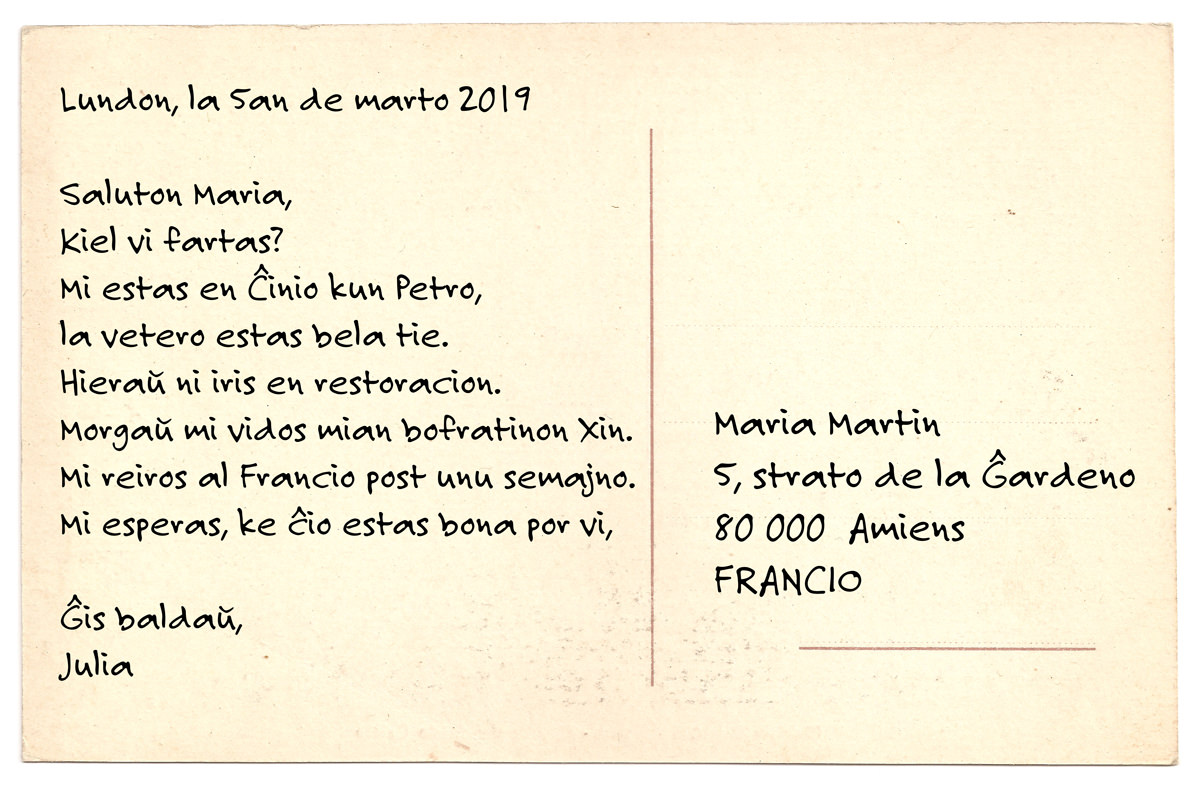 Lundon, la 5an de marto 2019
Saluton Maria,
Kiel vi fartas?
Mi estas en Ĉinio kun Petro,
la vetero estas bela tie.
Hieraŭ ni iris en restoracion.
Morgaŭ mi vidos mian bofratinon Xin.
Mi reiros al Francio post unu semajno.
Mi esperas, ke ĉio estas bona por vi,
Ĝis baldaŭ,
Julia
Maria Martin
5, strato de la Ĝardeno
80 000 Amiens
FRANCIO